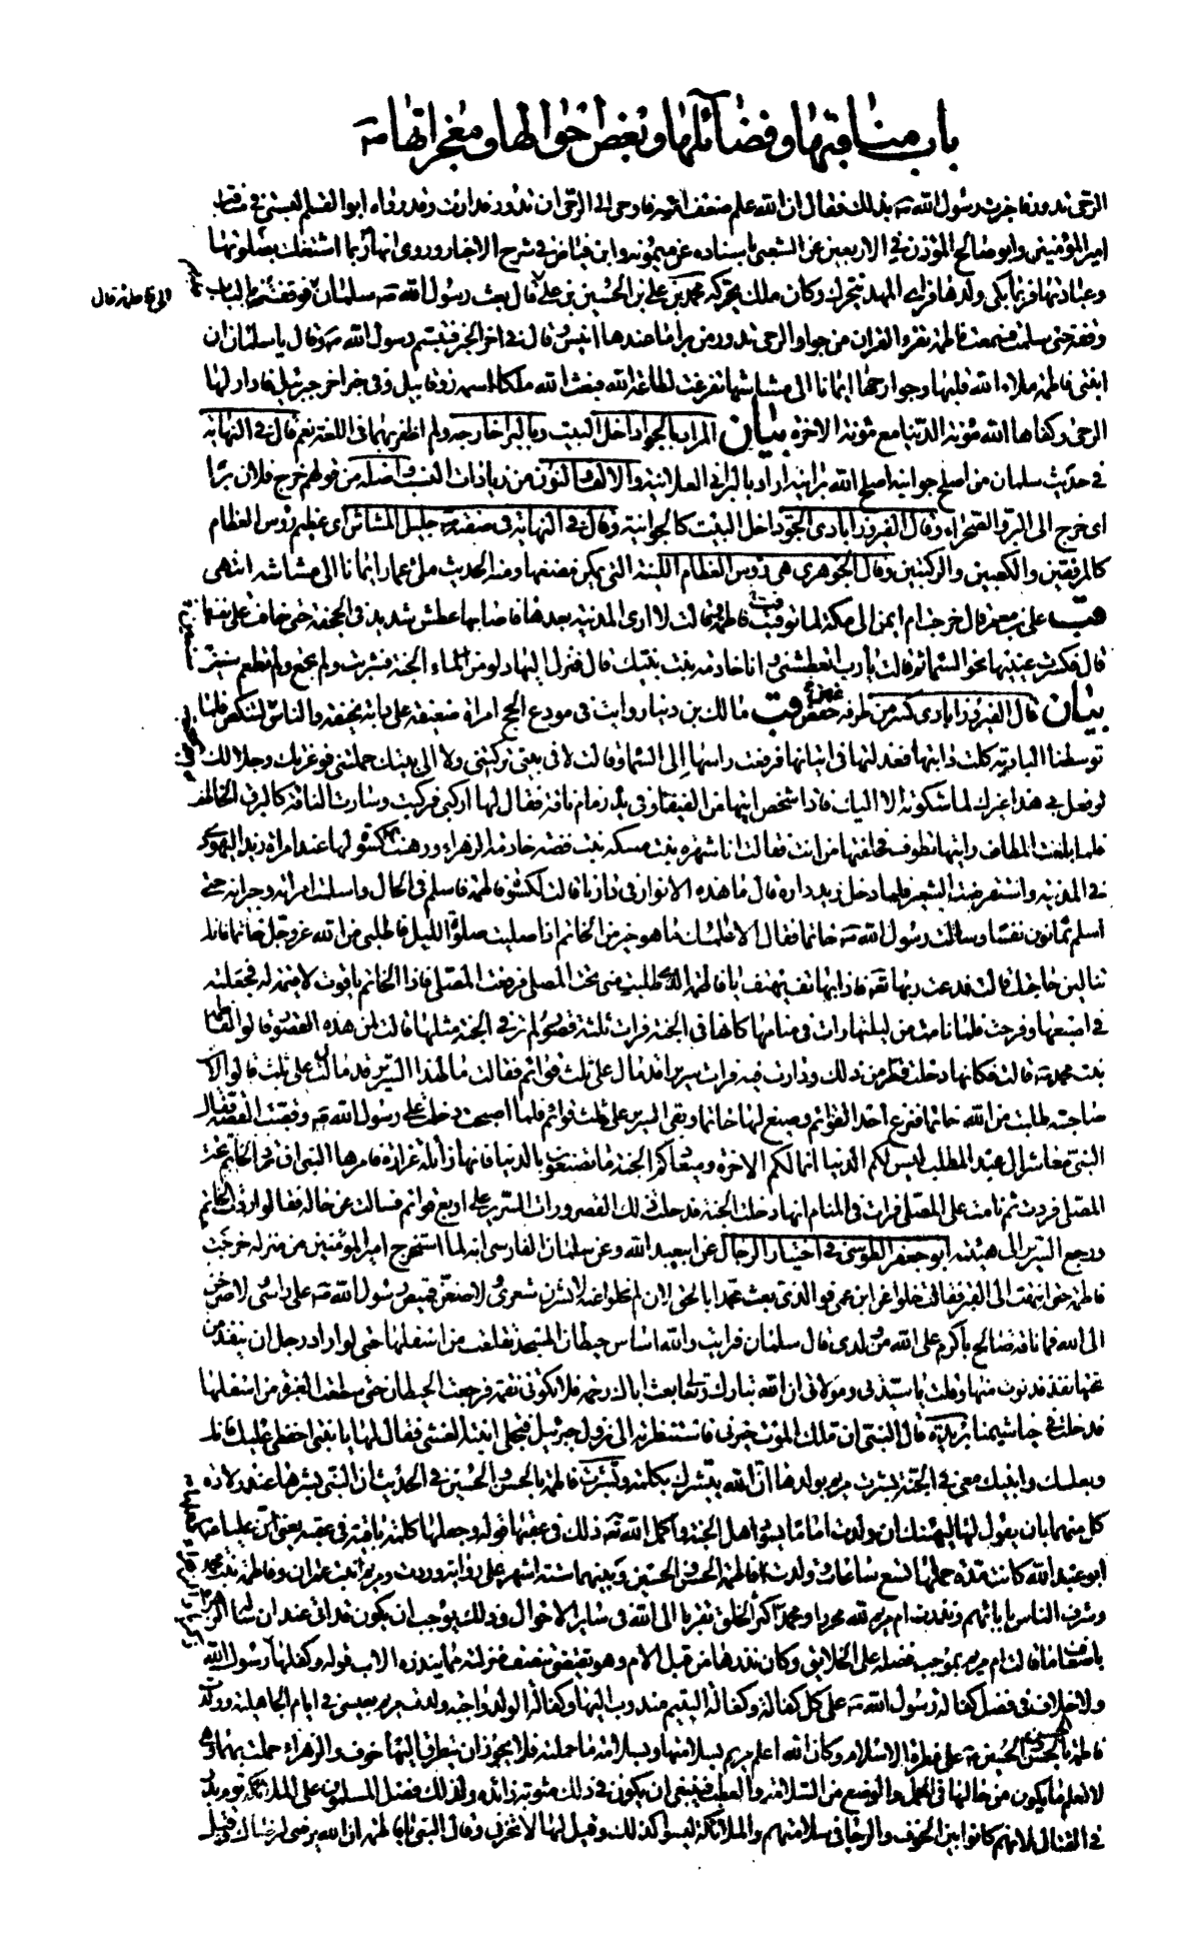 باب مناقبها وفضائلها وبعض احوالها ومعجزاتها ص
الرحى تدور فاخبرت رسول الله ص بذلك فقال ان الله علم ضعف امته فاوحى الى الرحى ان تدور فدارت وقد رواه ابو القسم البستى فى مناقب
امير المؤمنين وابو صالح المؤذن فى الاربعين عن الشعبى باسناده عن ميمونة وابن فياض فى شرح الاخبار وروى انها ربما اشتغلت بصلوتها
وعبادتها فربما بكى ولدها فراى المهد يتحرك وكان ملك يحركه محمد بن على بن الحسين بن على قال بعث رسول الله ص سلمان فوقفت بالباب
الى فاطمة قال
وقفة حتى سلمت فسمعت فاطمة تقرء القران من جوا والرحى تدور من برا ما عندها انيس قال فى اخر الخبر فتبسم رسول الله ص وقال يا سلمان ان
ابنتى فاطمة ملاء الله قلبها وجوارحها ايمانا الى مشاشها تفرغت لطاعة الله فبعث الله ملكا اسمه زوقابيل وفى خبر اخر جبرئيل فادار لها
الرحى وكفاها الله مؤنة الدنيا مع مؤنة الاخرة بيان المراد بالجوا داخل البيت وبالبرا خارجه ولم اظفر بهما فى اللغة نعم قال فى النهاية
فى حديث سلمان من اصلح جوانيه اصلح الله برانيه اراد بالبرانى العلانية والالف والنون من زيادات النسب اصله من قولهم خرج فلان برا
اى خرج الى البر والصحراء وقال الفيروزابادى الجو داخل البيت كالجوانية وقال فى النهاية فى صفته جليل المشاش اى عظيم رؤس العظام
كالمرفقين والكعبين والركبتين وقال الجوهرى هى رؤس العظام اللينة التى يمكن مضغها ومنه الحديث ملئ عمار ايمانا الى مشاشه انتهى
على بن معمر قال خرجت ام ايمن الى مكة لما توفيت فاطمة وقالت لا ارى المدينة بعدها فاصابها عطش شديد فى الجحفة حتى خافت على نفسها
قال فكسرت عينيها نحو السماء ثم قالت يا رب اتعطشنى وانا خادمة بنت نبيك قال فنزل اليها دلو من ماء الجنة فشربت ولم تجع ولم تطعم سنين
بيان قال الفيروزابادى كسر من طرفه غض قب مالك بن دينار رايت فى مودع الحج امراة ضعيفة على دابة نحيفة والناس لتنكص فلما
توسطنا البادية كلت دابتها فعذلتها فى اتيانها فرفعت راسها الى السماء وقالت لا فى بيتى تركتنى ولا الى بيتك حملتنى فوعزتك وجلالك
لو فعل بى هذا غيرك لما شكوته الا اليك فاذا شخص اتيها من الفيفاء وفى يده زمام ناقة فقال لها اركبى فركبت وسارت الناقة كالبرق الخاطف
فلما بلغت المطاف رايتها تطوف فحلفتها من انت فقالت انا شهرة بنت مسكة بنت فضة خادمة الزهراء ورهنت كسوة لها عند امراة زيد اليهودى
فى المدينة واستقرضت الشعير فلما دخل زيد داره قال ما هذه الانوار فى دارنا قالت لكسوة فاطمة فاسلم فى الحال واسلمت امراته وجيرانه حتى
اسلم ثمانون نفسا وسالت رسول الله ص خاتما فقال الا اعلمك ما هو خير من الخاتم اذا صليت صلوة الليل فاطلبى من الله عز وجل خاتما فانك
تنالين حاجتك قالت فدعت ربها تعالى فاذا بهاتف يهتف يا فاطمة الذى طلبت منى تحت المصلى فرفعت المصلى فاذا الخاتم ياقوت لا قيمة له فجعلته
فى اصبعها وفرحت فلما نامت من ليلتها رات فى منامها كانها فى الجنة فرات ثلثة قصور لم تر فى الجنة مثلها قالت لمن هذه القصور قالوا لفاطمة
بنت محمد ص قالت فكانها دخلت قصرا من ذلك ودارت فيه فرات سريرا قد مال على ثلث قوائم فقالت ما لهذا السرير قد مالت على ثلث قالوا لان
صاحبته طلبت من الله خاتما فنزع احد القوائم وصيغ لها خاتما وبقى السرير على ثلث قوائم فلما اصبحت دخلت على رسول الله ص وقصت القصة فقال
النبى معاشر ال عبد المطلب ليس لكم الدنيا انما لكم الاخرة وميعادكم الجنة ما تصنعون بالدنيا فانها زائلة غرارة فامرها النبى ان ترد الخاتم تحت
المصلى فردت ثم نامت على المصلى فرات فى المنام انها دخلت الجنة فدخلت ذلك القصر ورات السرير على اربع قوائم فسالت عن حاله فقالوا ردت الخاتم
ورجع السرير الى هيئته ابو جعفر الطوسى فى اختيار الرجال عن ابى عبد الله وعن سلمان الفارسى انه لما استخرج امير المؤمنين من منزله خرجت
فاطمة حتى انتهت الى القبر فقالت خلوا عن ابن عمى فوالذى بعث محمدا بالحق لان لم تخلوا عنه لانشرن شعرى ولاضعن قميص رسول الله ص على راسى ولاصرخن
الى الله فما ناقة صالح باكرم على الله من ولدى قال سلمان فرايت والله اساس حيطان المسجد تقلعت من اسفلها حتى لو اراد رجل ان ينفذ من
تحتها نفذ فدنوت منها وقلت يا سيدتى ومولاتى ان الله تبارك وتعالى بعث اباك رحمة فلا تكونى نقمة فرجعت الحيطان حتى سطعت الغبرة من اسفلها
فدخلت فى خياشيمنا قال النبى ان ملك الموت خيرنى فاستنظرته الى نزول جبرئيل فتجلى ابنته الغشى فقال لها يا بنتى احفظى عليك فانك
وبعلك وابنيك معى فى الجنة بشرت مريم بولدها ان الله يبشرك بكلمة وبشرت فاطمة بالحسن والحسين فى الحديث ان النبى بشرها عند ولادة
كل منهما بان يقول لها ليهنئك ان ولدت اماما يسود اهل الجنة واكمل الله تعالى ذلك فى عقبها قوله وجعلها كلمة باقية فى عقبه يعنى عليا
ابو عبد الله كانت مدة حملها تسع ساعات وولدت فاطمة الحسن والحسين وبينهما ستة اشهر على رواية وردت ومريم ابنت عمران وفاطمة بنت محمد
وشرف الناس بابائهم ونذرت ام مريم لله محررا ومحمد اكثر الخلق تقربا الى الله فى ساير الاحوال وذلك يوجب ان يكون قد اتى عند ان سال الزهراء
باضعاف ما قالت ام مريم بموجب فضله على الخلايق وكان نذرها من قبل الام وهو يقتضى تنصف منزلة ما ينذره الاب قوله وكفلها زكريا
ولا خلاف فى فضل كفالة رسول الله ص على كل كفالة وكفالة اليتيم مندوب اليها وكفالة الولد واجبة ولدت مريم بعيسى فى ايام الجاهلية وولدت
فاطمة بالحسن والحسين على فطرة الاسلام وكان الله اعلم مريم بسلامتها وبسلامة ما حملته فلا يجوز ان يتطرق اليها خوف والزهراء حملت بهما
لا تعلم ما يكون من حالها فى الحمل والوضع من السلامة والعطب فينبغى ان يكون فى ذلك مثوبة زائدة ولذلك فضل المسلمون على الملائكة يوم بدر
فى القتال لانهم كانوا بين الخوف والرجاء فى سلامتهم والملائكة ليسوا كذلك وقيل لها لا تحزنى وقال النبى يا فاطمة ان الله يرضى لرضاك وقيل